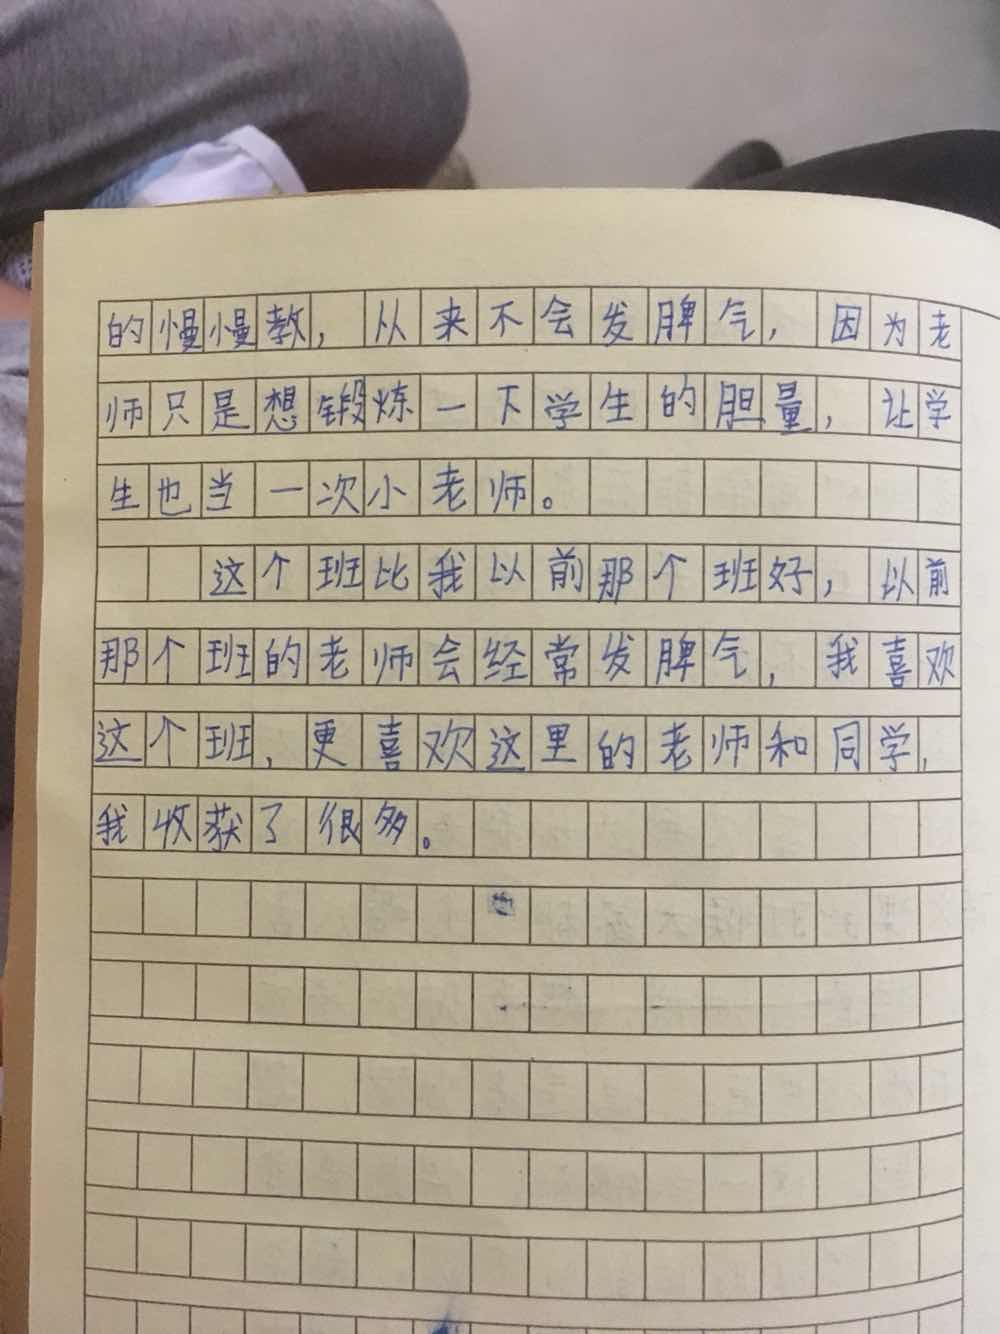 的慢慢教，从来不会发脾气，因为老
师只是想锻炼一下学生的胆量，让学
生也当一次小老师。
这个班比我以前那个班好，以前
那个班的老师会经常发脾气，我喜欢
这个班，更喜欢这里的老师和同学，
我收获了很多。